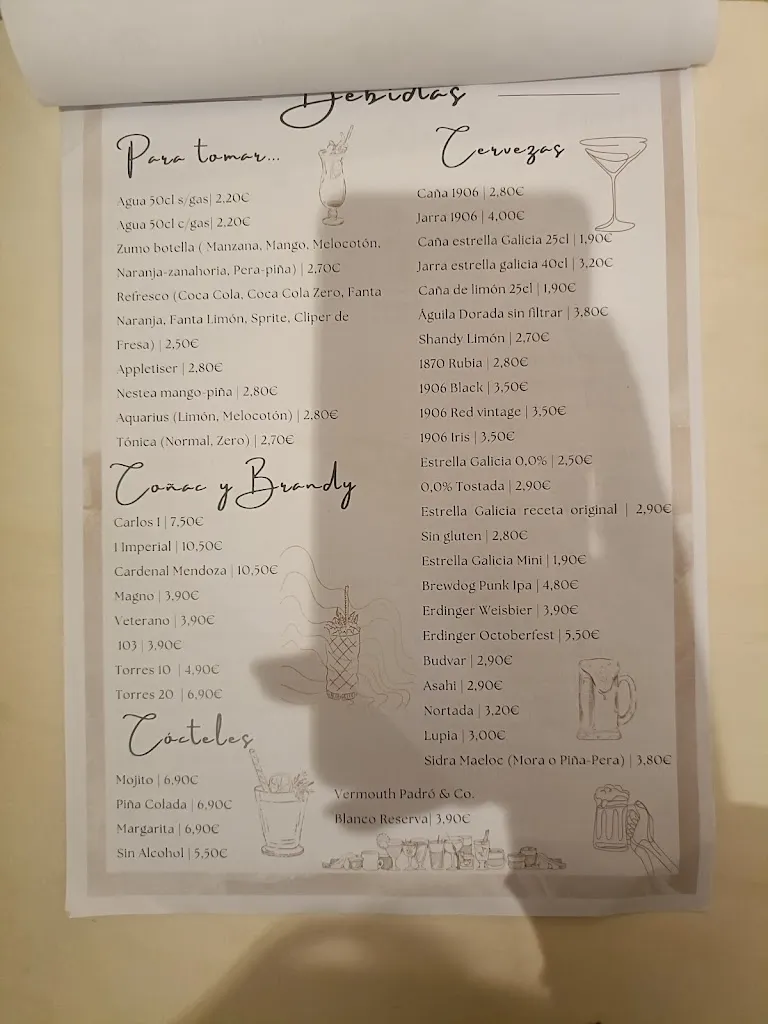 Bebidas
Para tomar...
Agua 50cl s/gas| 2,20€
Agua 50cl c/gas| 2,20€
Zumo botella ( Manzana, Mango, Melocotón,
Naranja-zanahoria, Pera-piña) | 2,70€
Refresco (Coca Cola, Coca Cola Zero, Fanta
Naranja, Fanta Limón, Sprite, Cliper de
Fresa) | 2,50€
Appletiser | 2,80€
Nestea mango-piña | 2,80€
Aquarius (Limón, Melocotón) | 2,80€
Tónica (Normal, Zero) | 2,70€
Coñac y Brandy
Carlos I | 7,50€
I Imperial | 10,50€
Cardenal Mendoza | 10,50€
Magno | 3,90€
Veterano | 3,90€
103 | 3,90€
Torres 10 | 4,90€
Torres 20 | 6,90€
Cócteles
Mojito | 6,90€
Piña Colada | 6,90€
Margarita | 6,90€
Sin Alcohol | 5,50€
Cervezas
Caña 1906 | 2,80€
Jarra 1906 | 4,00€
Caña estrella Galicia 25cl | 1,90€
Jarra estrella galicia 40cl | 3,20€
Caña de limón 25cl | 1,90€
Águila Dorada sin filtrar | 3,80€
Shandy Limón | 2,70€
1870 Rubia | 2,80€
1906 Black | 3,50€
1906 Red vintage | 3,50€
1906 Iris | 3,50€
Estrella Galicia 0,0% | 2,50€
0,0% Tostada | 2,90€
Estrella Galicia receta original | 2,90€
Sin gluten | 2,80€
Estrella Galicia Mini | 1,90€
Brewdog Punk Ipa | 4,80€
Erdinger Weisbier | 3,90€
Erdinger Octoberfest | 5,50€
Budvar | 2,90€
Asahi | 2,90€
Nortada | 3,20€
Lupia | 3,00€
Sidra Maeloc (Mora o Piña-Pera) | 3,80€
Vermouth Padró & Co.
Blanco Reserva| 3,90€